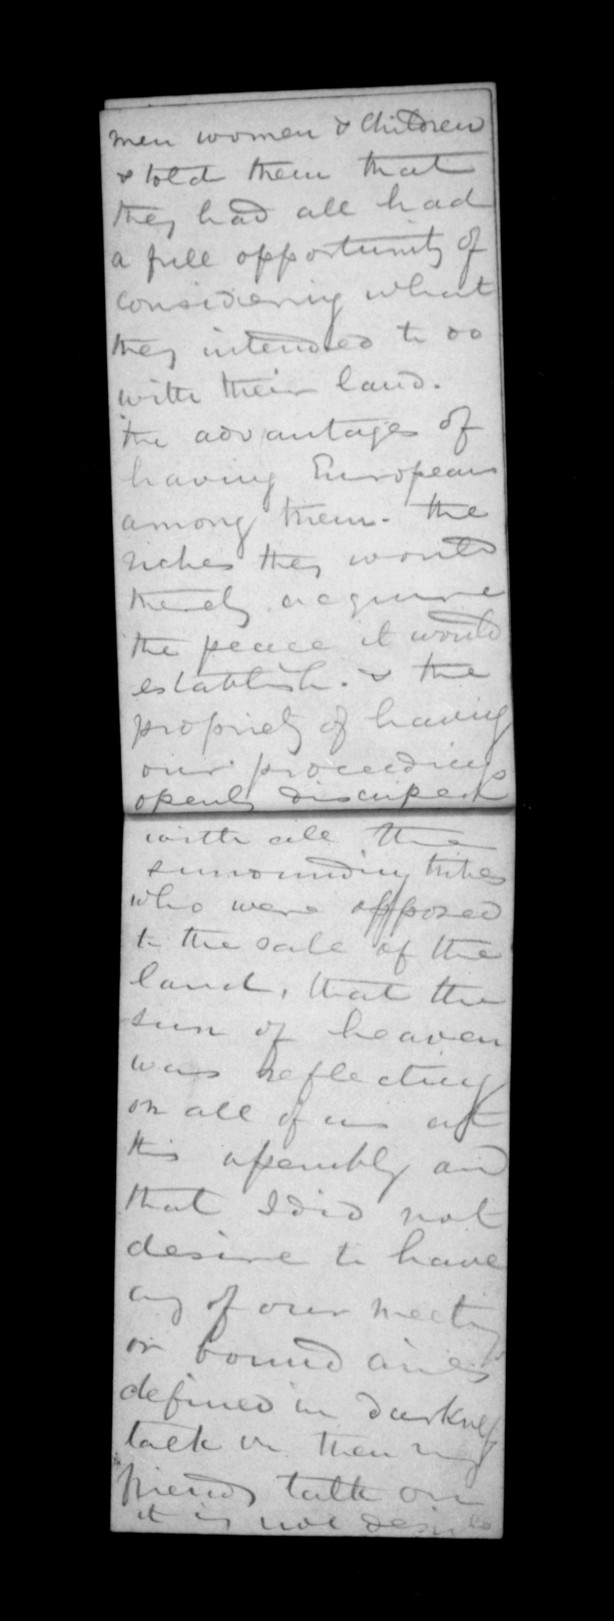 men women & children
& told them that
they had all had
a full opportunity of
considering what
they intended to do
with their land.
the advantages of
having Europeans
among them. the
riches they would
thereby acquire
the peace it would
establish. & the
propriety of having
our proceedings
openly discussed
with all the
surrounding tribes
who were opposed
to the sale of the
land, that the
sun of heaven
was reflecting
on all of us at
this assembly and
that I did not
desire to have
any of our meetings
or boundaries
defined in darkness
talk on then my
friends talk on
it is not